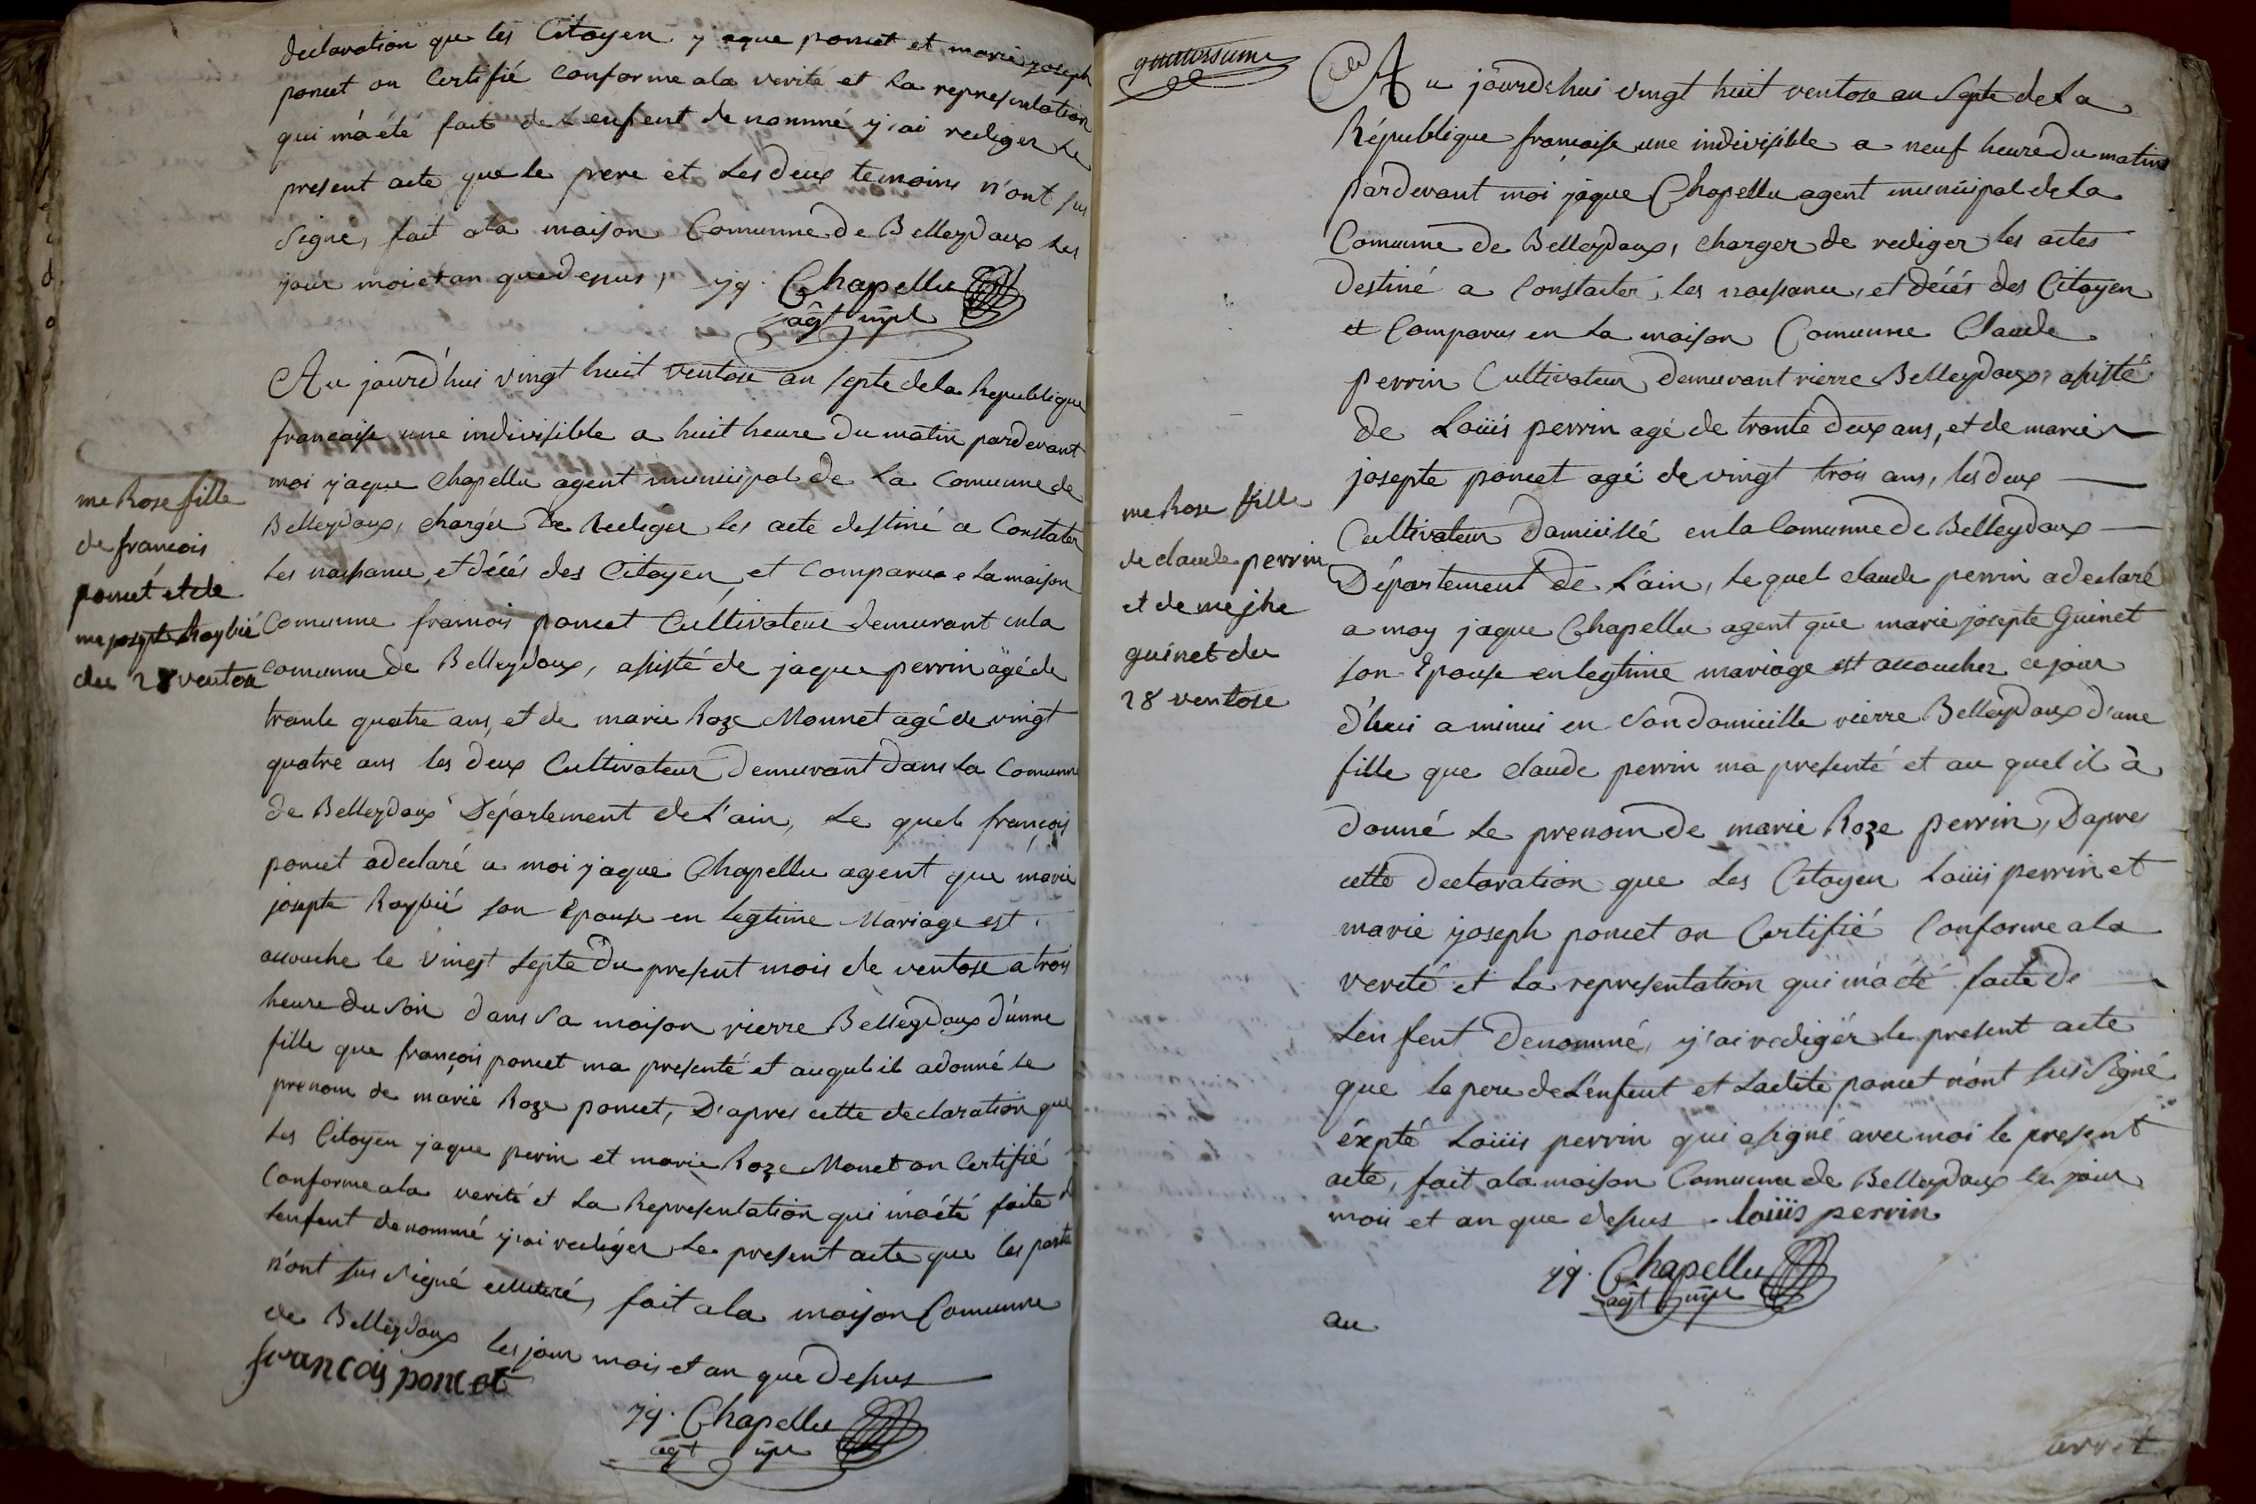 declaration que les Citoyen yaque poncet et marie joseph
poncet on Certifié Conforme a la verité et La representation
qui m'a été fait de L'enfent denommé y'ai rediger Le
present acte que le pere et Les deux temoins n'ont sus
Signé, fait a la maison Comunne de Belleydoux Les
jour moi et an que depus, yq. Chapellu
agt mpl
Au jourd'hui vingt huit ventose an septe de la Republique
francaise une indivisible a huit heure du matin pardevant
moi yaque Chapellu agent municipal de La Comunne de
Belleydoux, charger de Rediger les acte destiné a Constater
Les naissance, et décés des Citoyen et Comparue e La maison
Comunne francois poncet Cultivateur demurant en la
comunne de Belleydoux, asisté de jaque perrin agé de
trante quatre ans, et de marie Roze Monnet agé de vingt
quatre ans les deux Cultivateur demurant dans La Comunne
de Belleydoux Département de L'ain, Le quel françois
poncet a declaré a moi yaque Chapellu agent que marie
josepte Raybié son Epouse en legtime Mariage est
acouche le vingt septe du present mois de ventose a trois
heure du soir dans sa maison rierre Belleydoux d'unne
fille que françois poncet ma presenté et auquel il a donné Le
prenom de marie Roze poncet, D'apres cette declaration que
Les Citoyen yaque perin et marie Roze Monet on Certifié
Conforme a la verité et La Representation qui m'a été faite d
Lenfent denommé y'ai rediger Le present acte que les parti
n'ont sus signé , fait a la maison Comunne
de Belleydoux les jour mois et an que depus
francois poncet
yq. Chapellu
agt mpl
me Rose fille
de francois
poncet et de
me josepte Raybié
du 28 ventose
quatorsieme
Au jourdehui vingt huit ventose an Septe de La
République francaise une indivisible a neuf heure du matin
pardevant moi jaque Chapellu agent municipal de La
Comunne de Belleydoux, charger de rediger les actes
destiné a Constater, les naissance, et décés des Citoyen
et Comparus en La maison Comunne Claude
perrin Cultivateur demurant rierre Belleydoux, asisté
de Loüis perrin agé de trante deux ans, et de marie
josepte poncet agé de vingt trois ans, les deux
Cultivateur domicillé en la Comunne de Belleydoux
Département de L'ain, Le quel claude perrin a declaré
a moy jaque Chapellu agent que marie josepte Guinet
son Epouse en legtime mariage est acoucher ce jour
d'hui a minui en son domicille rierre Belleydoux d'une
fille que claude perrin ma presenté et au quel il à
donné Le prenom de marie Roze perrin, D'apres
cette declaration que Les Citoyen Loüis perrin et
marie yoseph poncet on Certifié Conforme a la
verité et La representation qui m'a été faite de
L'enfent denommé, y'ai rediger le present acte
que le pere de L'enfent et Ladite poncet n'ont sus Signé
éxepté Loüis perrin qui a signé avec moi le present
acte, fait a la maison Comunne de Belleydoux les jour
mois et an que desus loüis perrin
yq. Chapellu
agt mpl
au
arret
me Rose fille
de claude perrin
et de me jhe
guinet du
28 ventose